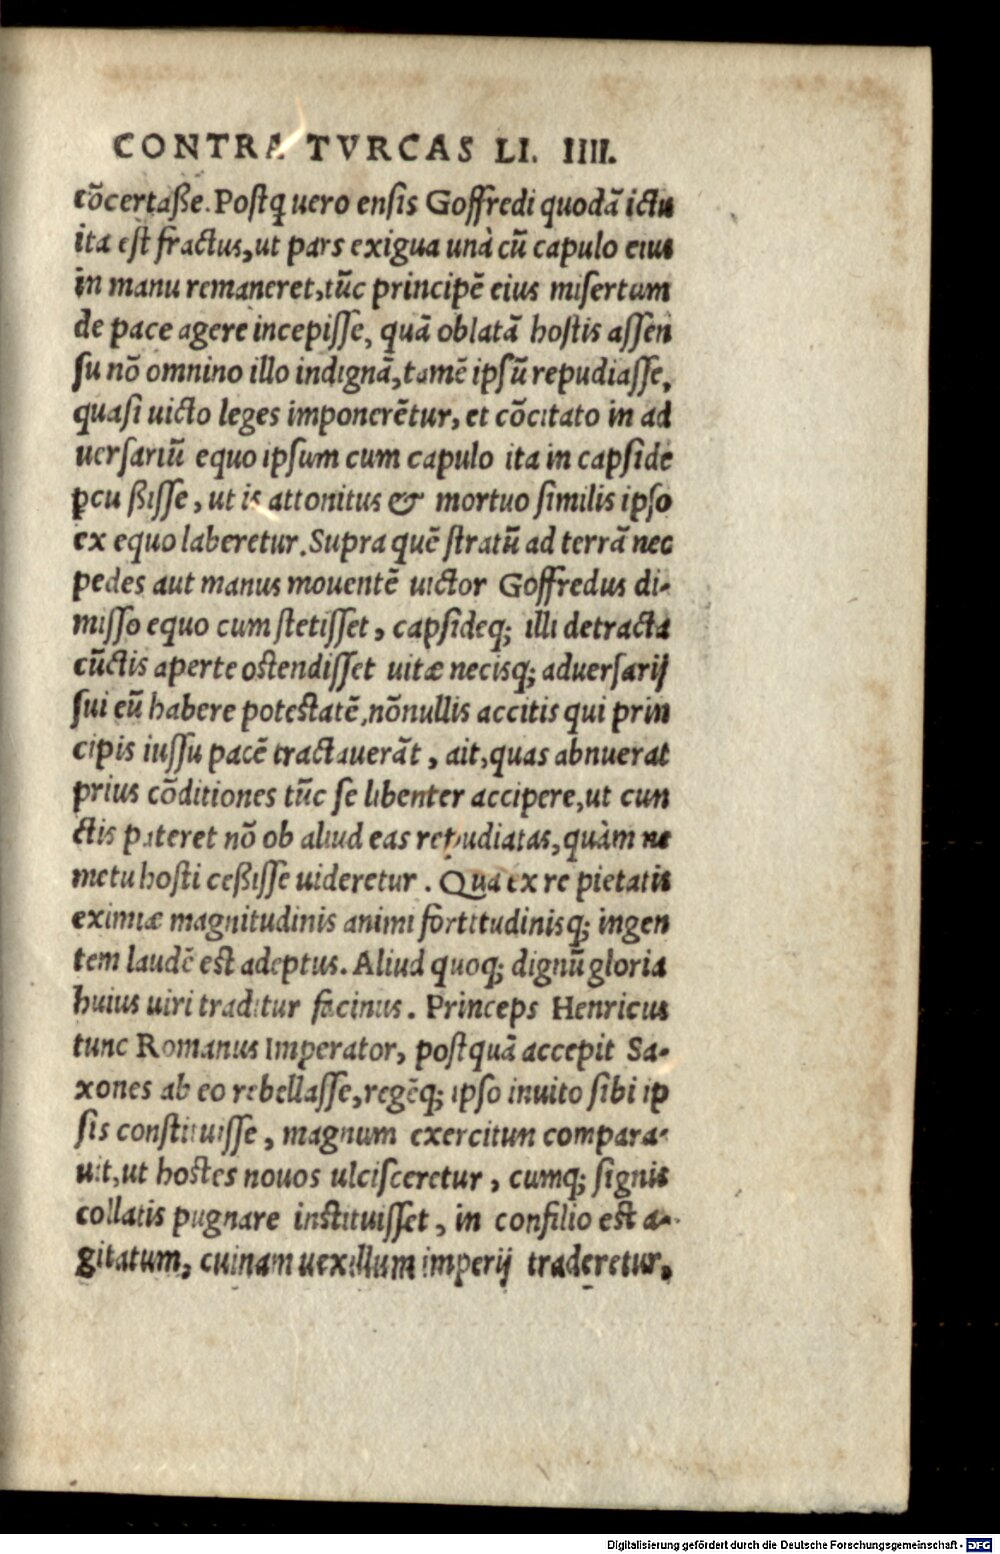 CONTRA TVRCAS LI. IIII.
cõcertaße. Postq̃ uero ensis Goffredi quodã ictu
ita est fractus, ut pars exigua unà cũ capulo eius
in manu remaneret, tũc principẽ eius misertum
de pace agere incepisse, quã oblatã hostis assen
su nõ omnino illo indignã, tamẽ ipsũ repudiasse,
quasi uicto leges imponerẽtur, et cõcitato in ad
uersariũ equo ipsum cum capulo ita in capside
ꝑcußisse, ut is attonitus & mortuo similis ipso
ex equo laberetur. Supra quẽ stratũ ad terrã nec
pedes aut manus mouentẽ uictor Goffredus di-
misso equo cum stetisset, capsideq; illi detracta
cũctis aperte ostendisset uitæ necisq; aduersarij
sui eũ habere potestatẽ, nõnullis accitis qui prin
cipis iussu pacẽ tractauerãt, ait, quas abnuerat
prius cõditiones tũc se libenter accipere, ut cun
ctis pateret nõ ob aliud eas repudiatas, quàm ne
metu hosti ceßisse uideretur. Qua ex re pietatis
eximiæ magnitudinis animi fortitudinisq; ingen
tem laudẽ est adeptus. Aliud quoq; dignũ gloria
huius uiri traditur facinus. Princeps Henricus
tunc Romanus Imperator, postquã accepit Sa-
xones ab eo rebellasse, regẽq; ipso inuito sibi ip
sis constituisse, magnum exercitun compara-
uit, ut hostes nouos ulcisceretur, cumq; signis
collatis pugnare instituisset, in consilio est a-
gitatum, cuinam uexillum imperij traderetur,
Digitalisierung gefördert durch die Deutsche Forschungsgemeinschaft - DFG